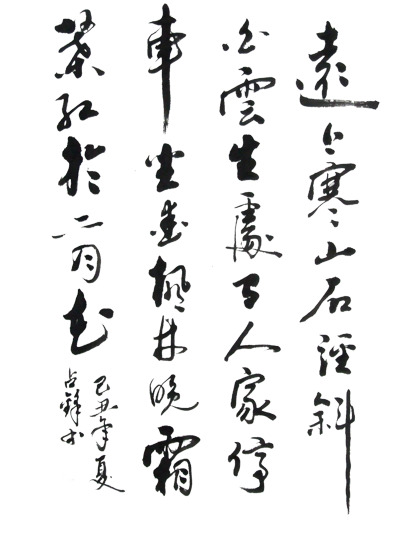 遠上寒山石徑斜
白雲生處有人家停
車坐愛楓林晚霜
葉紅於二月花
己丑年夏
占鋒书